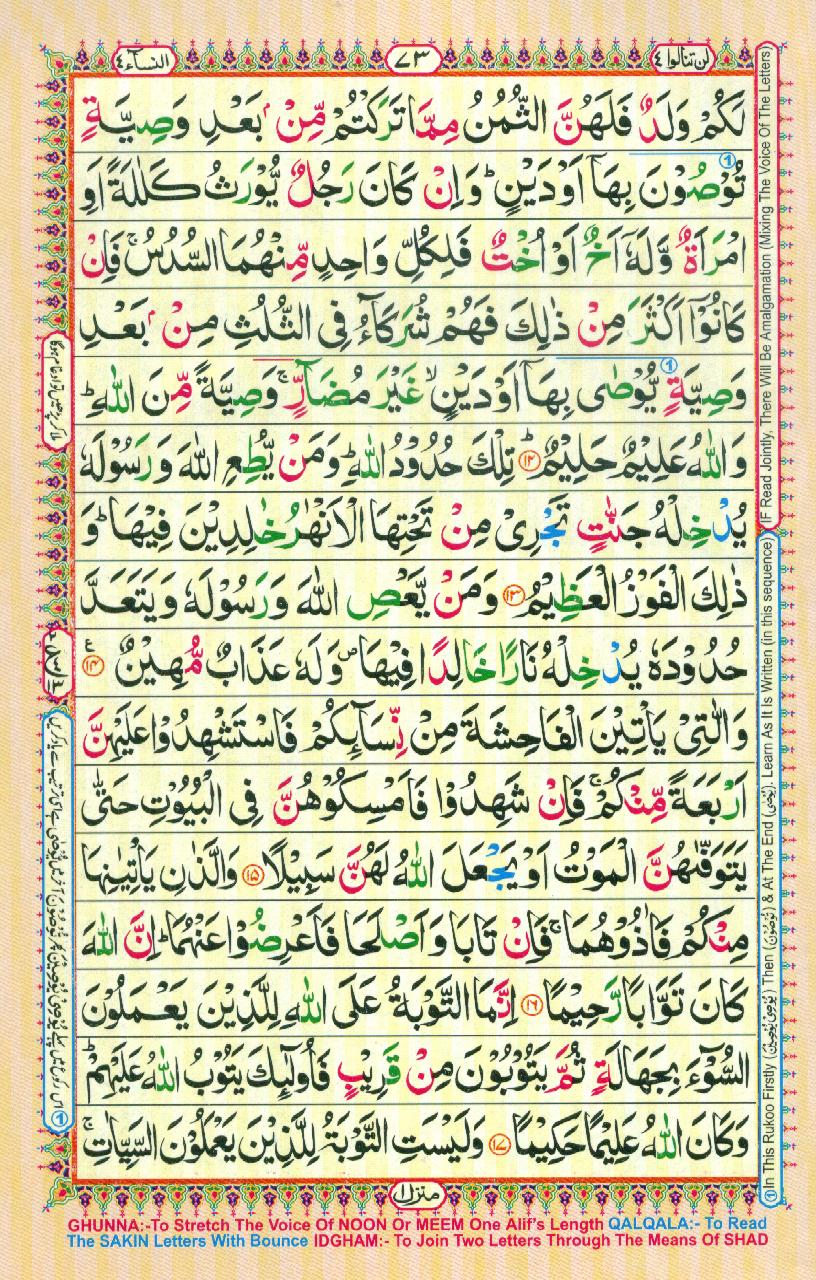 النسآء ٤
٧٣
لن تنالوا ٤
لَكُمْ وَلَدٌ فَلَهُنَّ الثُّمُنُ مِمَّا تَرَكْتُمْ مِّنْۢ بَعْدِ وَصِيَّةٍ
تُوْصُوْنَ بِهَاۤ اَوْ دَيْنٍ ؕ وَاِنْ كَانَ رَجُلٌ يُّوْرَثُ كَلٰلَةً اَوِ
امْرَاَةٌ وَّلَهٗۤ اَخٌ اَوْ اُخْتٌ فَلِكُلِّ وَاحِدٍ مِّنْهُمَا السُّدُسُ ۚ فَاِنْ
كَانُوْۤا اَكْثَرَ مِنْ ذٰلِكَ فَهُمْ شُرَكَآءُ فِى الثُّلُثِ مِنْۢ بَعْدِ
وَصِيَّةٍ يُّوْصٰى بِهَاۤ اَوْ دَيْنٍ ۙ غَيْرَ مُضَآرٍّ ۚ وَصِيَّةً مِّنَ اللّٰهِ ؕ
وَاللّٰهُ عَلِيْمٌ حَلِيْمٌ ؕ ﴿١٢﴾ تِلْكَ حُدُوْدُ اللّٰهِ ؕ وَمَنْ يُّطِعِ اللّٰهَ وَرَسُوْلَهٗ
يُدْخِلْهُ جَنّٰتٍ تَجْرِىْ مِنْ تَحْتِهَا الْاَنْهٰرُ خٰلِدِيْنَ فِيْهَا ؕ وَ
ذٰلِكَ الْفَوْزُ الْعَظِيْمُ ﴿١٣﴾ وَمَنْ يَّعْصِ اللّٰهَ وَرَسُوْلَهٗ وَيَتَعَدَّ
حُدُوْدَهٗ يُدْخِلْهُ نَارًا خَالِدًا فِيْهَا ۪ وَلَهٗ عَذَابٌ مُّهِيْنٌ ﴿١٤﴾ ع
وَالّٰتِىْ يَاْتِيْنَ الْفَاحِشَةَ مِنْ نِّسَآئِكُمْ فَاسْتَشْهِدُوْا عَلَيْهِنَّ
اَرْبَعَةً مِّنْكُمْ ۚ فَاِنْ شَهِدُوْا فَاَمْسِكُوْهُنَّ فِى الْبُيُوْتِ حَتّٰى
يَتَوَفّٰىهُنَّ الْمَوْتُ اَوْ يَجْعَلَ اللّٰهُ لَهُنَّ سَبِيْلًا ﴿١٥﴾ وَالَّذٰنِ يَاْتِيٰنِهَا
مِنْكُمْ فَاٰذُوْهُمَا ۚ فَاِنْ تَابَا وَاَصْلَحَا فَاَعْرِضُوْا عَنْهُمَا ؕ اِنَّ اللّٰهَ
كَانَ تَوَّابًا رَّحِيْمًا ﴿١٦﴾ اِنَّمَا التَّوْبَةُ عَلَى اللّٰهِ لِلَّذِيْنَ يَعْمَلُوْنَ
السُّوْٓءَ بِجَهَالَةٍ ثُمَّ يَتُوْبُوْنَ مِنْ قَرِيْبٍ فَاُولٰٓئِكَ يَتُوْبُ اللّٰهُ عَلَيْهِمْ ؕ
وَكَانَ اللّٰهُ عَلِيْمًا حَكِيْمًا ﴿١٧﴾ وَلَيْسَتِ التَّوْبَةُ لِلَّذِيْنَ يَعْمَلُوْنَ السَّيِّاٰتِ ۚ
منزل ١
IF Read Jointly, There Will Be Amalgamation (Mixing The Voice Of The Letters)
① In This Rukoo Firstly (يُوْصِىْ يُوْصِيْنَ) Then (تُوْصُوْنَ) & At The End (يُوْصٰى). Learn As It Is Written (in this sequence)
GHUNNA:-To Stretch The Voice Of NOON Or MEEM One Alif's Length QALQALA:- To Read
The SAKIN Letters With Bounce IDGHAM:- To Join Two Letters Through The Means Of SHAD